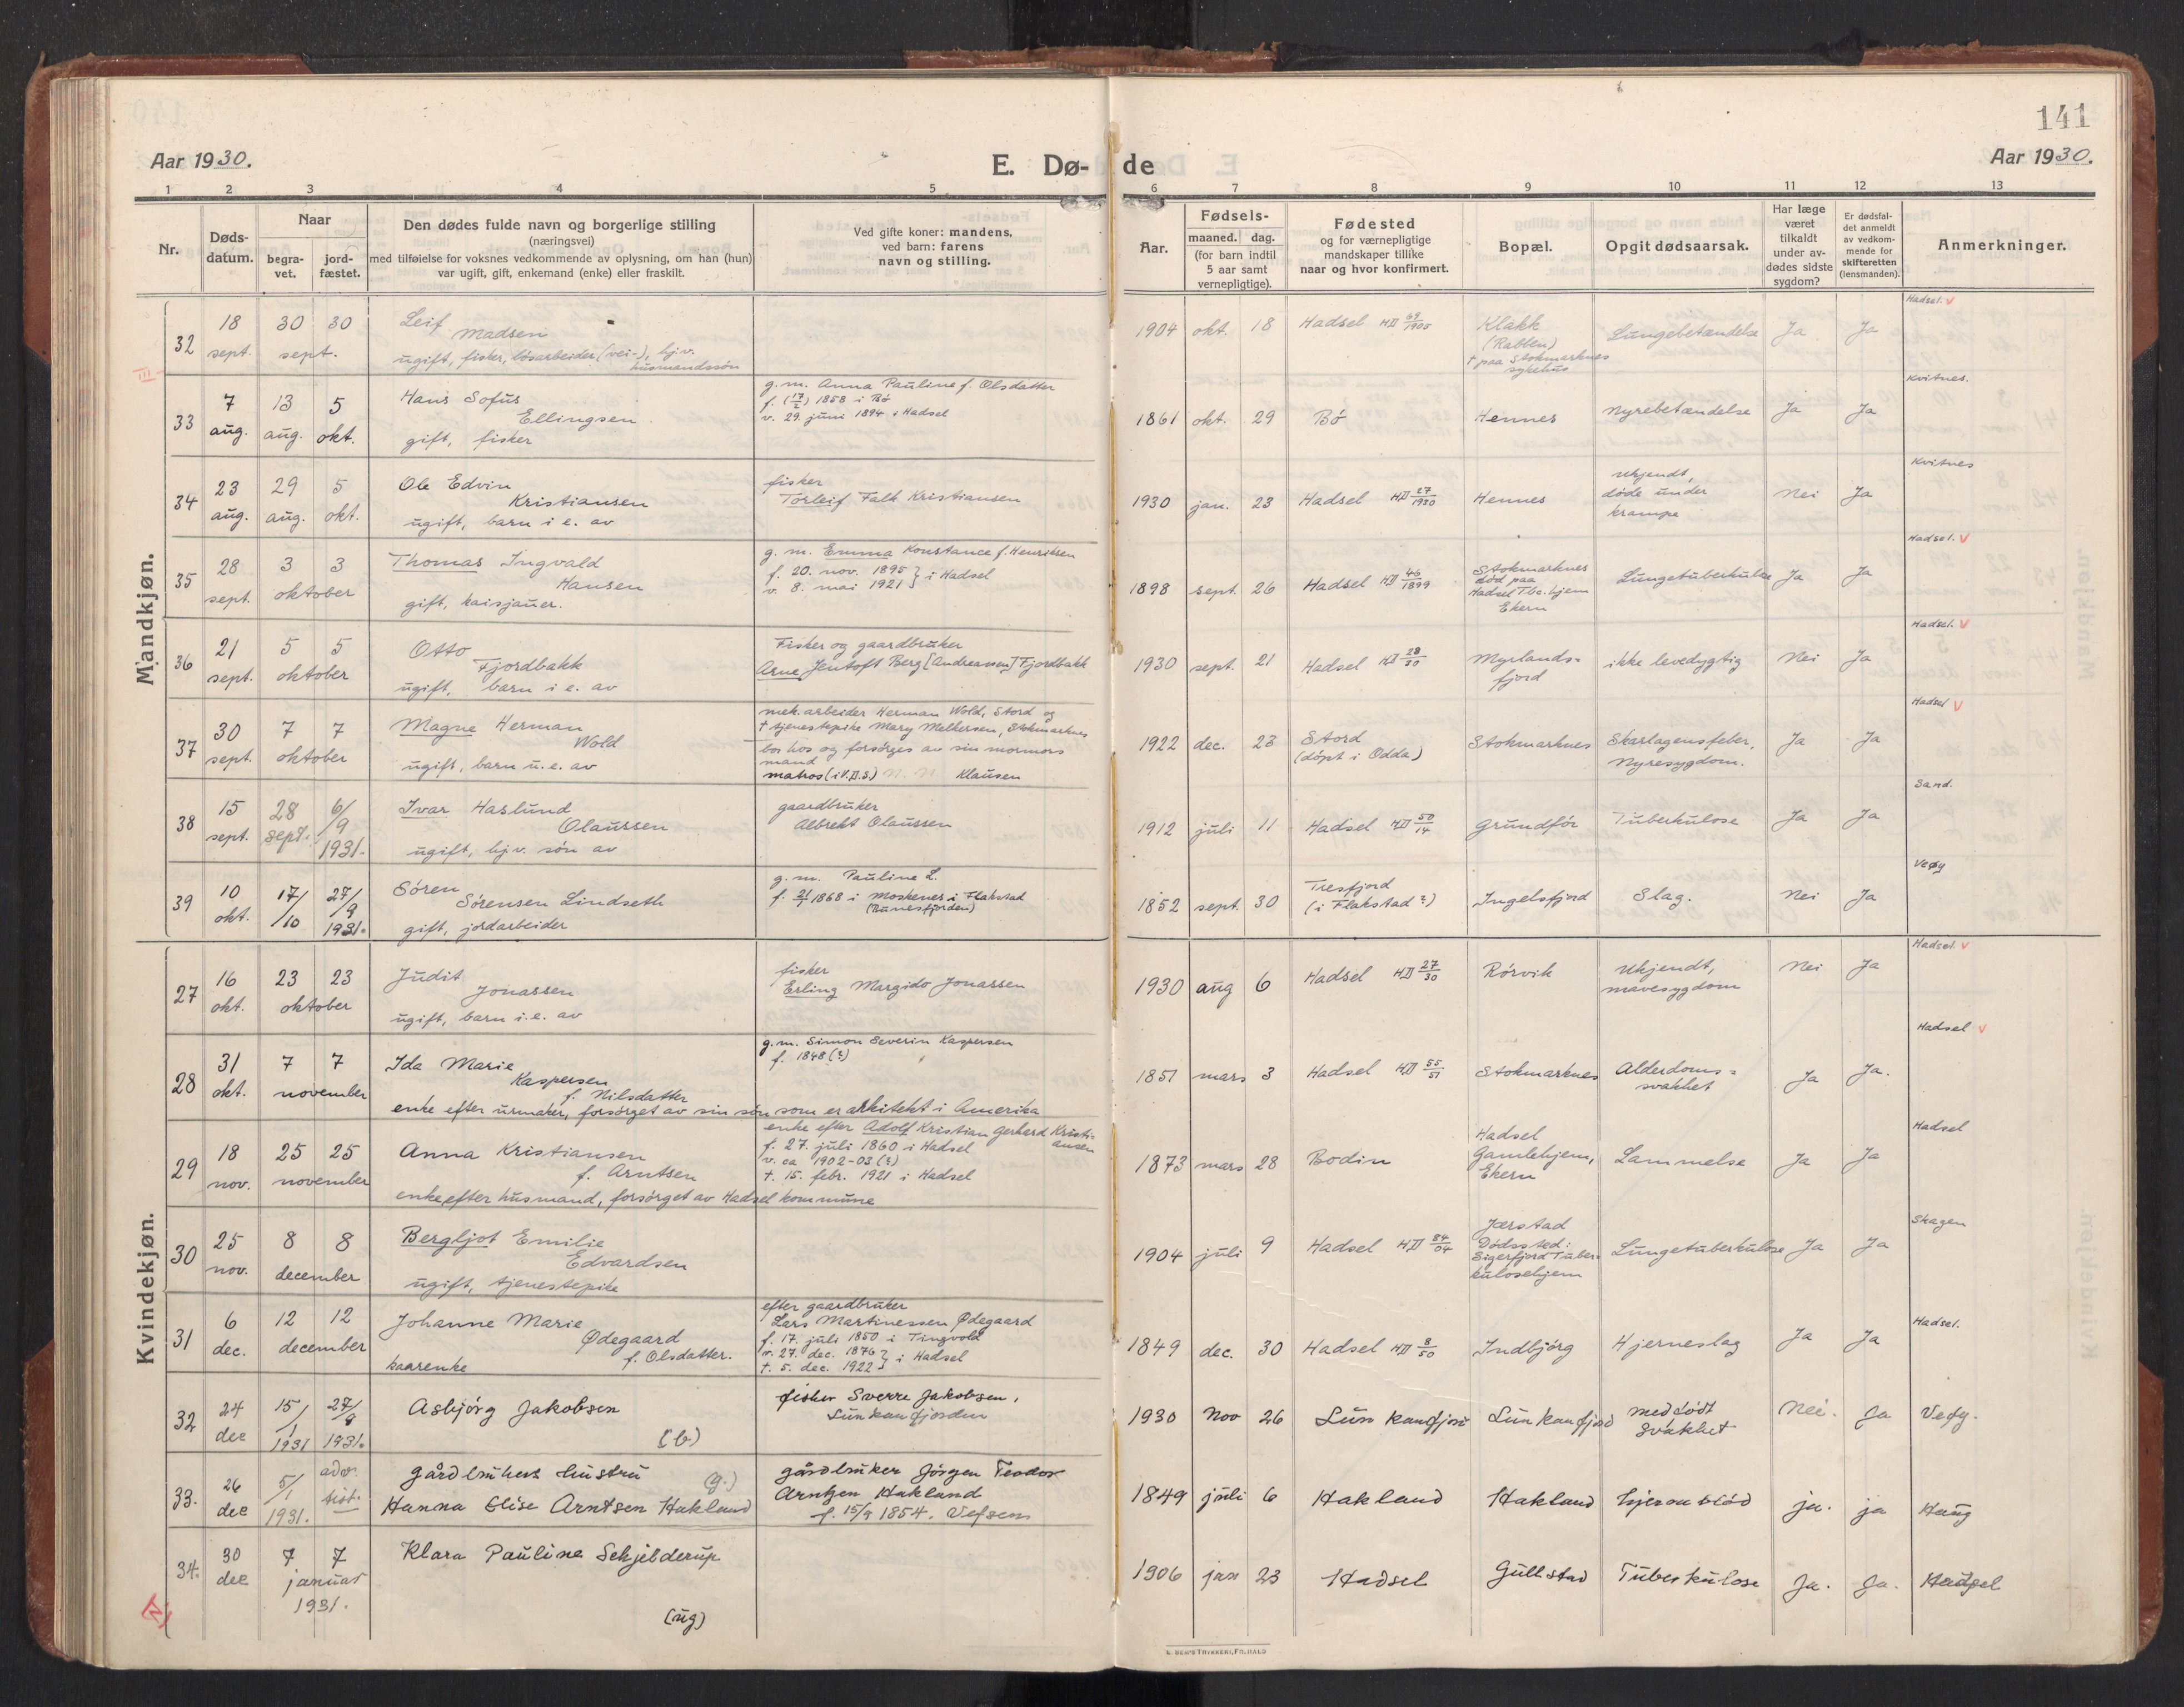 141
Aar 1930.
E. Dø-de
Aar 1930.
1 2 3 4 5 6 7 8 9 10 11 12 13
Nr.
Døds-
datum.
Naar
begra-
vet.
jord-
fæstet.
Den dødes fulde navn og borgerlige stilling
(næringsvei)
med tilføielse for voksnes vedkommende av oplysning, om han (hun)
var ugift, gift, enkemand (enke) eller fraskilt.
Ved gifte koner: mandens,
ved barn: farens
navn og stilling.
Aar.
Fødsels-
maaned. dag.
(for barn indtil
5 aar samt
vernepligtige).
Fødested
og for værnepligtige
mandskaper tillike
naar og hvor konfirmert.
Bopæl.
Opgit dødsaarsak.
Har læge
været
tilkaldt
under av-
dødes sidste
sygdom?
Er dødsfal-
det anmeldt
av vedkom-
mende for
skifteretten
(lensmanden).
Anmerkninger.
Mandkjøn.
32
18
sept.
30 30
sept.
Leif
Madsen
ugift, fisker, løsarbeider (vei-), hj.v.
husmandssøn
1904 okt. 18
Hadsel HII 69/1905
Klakk
(Rabben)
† paa Stokmarknes
sykehus
Lungebetændelse
Ja
Ja
Hadsel. V
III
33
7
aug.
13
aug.
5
okt.
Hans Sofus
Ellingsen
gift, fisker
g. m. Anna Pauline f. Olsdatter
f. (17/2) 1858 i Bø
v. 29. juni 1894 i Hadsel
1861 okt. 29
Bø
Hennes
Nyrebetændelse
Ja
Ja
Kvitnes.
34
23
aug.
29
aug.
5
okt.
Ole Edvin
Kristiansen
ugift, barn i e. av
fisker
Torleif Falk Kristiansen
1930 jan. 23
Hadsel HII 27/1930
Hennes
Ukjendt,
døde under
krampe
Nei
Ja
Kvitnes
35
28
sept.
3 3
oktober
Thomas Ingvald
Hansen
gift, kaisjauer.
g. m. Emma Konstance f. Henriksen
f. 20. nov. 1895
v. 8. mai 1921 } i Hadsel
1898 sept. 26
Hadsel HII 46/1899
Stokmarknes
død paa
Hadsel T.bc. hjem
Ekern
Lungetuberkulose
Ja
Ja
Hadsel. V
36
21
sept.
5 5
oktober
Otto
Fjordbakk
ugift, barn i e. av
Fisker og gaardbruker
Arne Jentoft Berg [Andreassen] Fjordbakk
1930 sept. 21
Hadsel HII 28/30
Myrlands-
fjord
ikke levedygtig
Nei
Ja
Hadsel. V
37
30
sept.
7 7
oktober
Magne Herman
Wold
ugift, barn u. e. av
mek. arbeider Herman Wold, Stord og
† tjenestepike Mary Melkersen, Stokmarknes
bor hos og forsørges av sin mormors
mand
matros (i V.D.S.) N. N. Klausen
1922 dec. 23
Stord
(døpt i Odda)
Stokmarknes
Skarlagensfeber,
Nyresygdom.
Ja
Ja
Hadsel V
38
15
sept.
28
sept.
6/9
1931.
Ivar Haslund
Olaussen
ugift, hj.v. søn av
gaardbruker
Albrekt Olaussen
1912 juli 11
Hadsel HII 50/14
Grundfør
Tuberkulose
Ja
Ja
Sand.
39
10
okt.
17/10
27/9
1931.
Søren
Sørensen Lindseth
gift, jordarbeider
g. m. Pauline L.
f. 21/1 1868 i Moskenes i Flakstad
(Bunesfjorden)
1852 sept. 30
Tresfjord
(i Flakstad ?)
Ingelsfjord
Slag.
Nei
Ja
Veøy
Kvindekjøn.
27
16
okt.
23 23
oktober
Judit
Jonassen
ugift, barn i. e. av
fisker
Erling Margido Jonassen
1930 aug 6
Hadsel HII 27/30
Rørvik
Ukjendt,
mavesygdom
Nei
Ja
Hadsel V
28
31
okt.
7 7
november
Ida Marie
Kaspersen
f. Nilsdatter
enke efter urmaker, forsørget av sin søn som er arkitekt i Amerika
g. m. Simon Severin Kaspersen
f. 1848 (?)
1851 mars 3
Hadsel HII 55/51
Stokmarknes
Alderdoms-
svakhet
Ja
Ja.
Hadsel V
29
18
nov.
25 25
november
Anna Kristiansen
f. Arntsen
enke efter husmand, forsørget av Hadsel kommune
enke efter Adolf Kristian Gerhard Kristi-
ansen
f. 27. juli 1860 i Hadsel
v. ca 1902-03 (?)
†. 15. febr. 1921 i Hadsel
1873 mars 28
Bodin
Hadsel
Gamlehjem,
Ekern
Lammelse
Ja
Ja
Hadsel
30
25
nov.
8 8
december
Bergljot Emilie
Edvardsen
ugift, tjenestepike
1904 juli 9
Hadsel HII 84/04
Jørstad
Dødssted:
Sigerfjord Tuber-
kulosehjem
Lungetuberkulose
Ja
Ja
Skagen
31
6
dec.
12 12
december
Johanne Marie
Ødegaard
f. Olsdatter.
kaarenke
efter gaardbruker
Lars Martinessen Ødegaard
f. 17. juli 1850 i Tingvold
v. 27. dec. 1876
†. 5. dec. 1922 } i Hadsel
1849 dec. 30
Hadsel HII 8/50
Indbjörg
Hjerneslag
Ja
Ja
Hadsel.
32
24
dec
15/1
1931
27/9
1931.
Asbjørg Jakobsen
(b)
fisker Sverre Jakobsen,
Lunkanfjorden
1930 Nov 26
Lunkanfjord
Lunkanfjord
medfødt
svakhet
Nei.
Ja
Veøy.
33.
26
dec
5/1
1931.
adv.
tist.
gårdbrukers hustru (g.)
Hanna Elise Arntsen Hakland
gårdbruker Jørgen Teodor
Arntzen Hakland
f. 15/9 1854. Vefsen
1849 juli 6
Hakland
Hakland
ja.
ja
Haug
34.
30
dec
7 7
januar
1931.
Klara Pauline Schjelderup
(ug)
1906 jan 23
Hadsel
Gullstad
Tuberkulose
Ja.
Ja.
Hadsel
IV